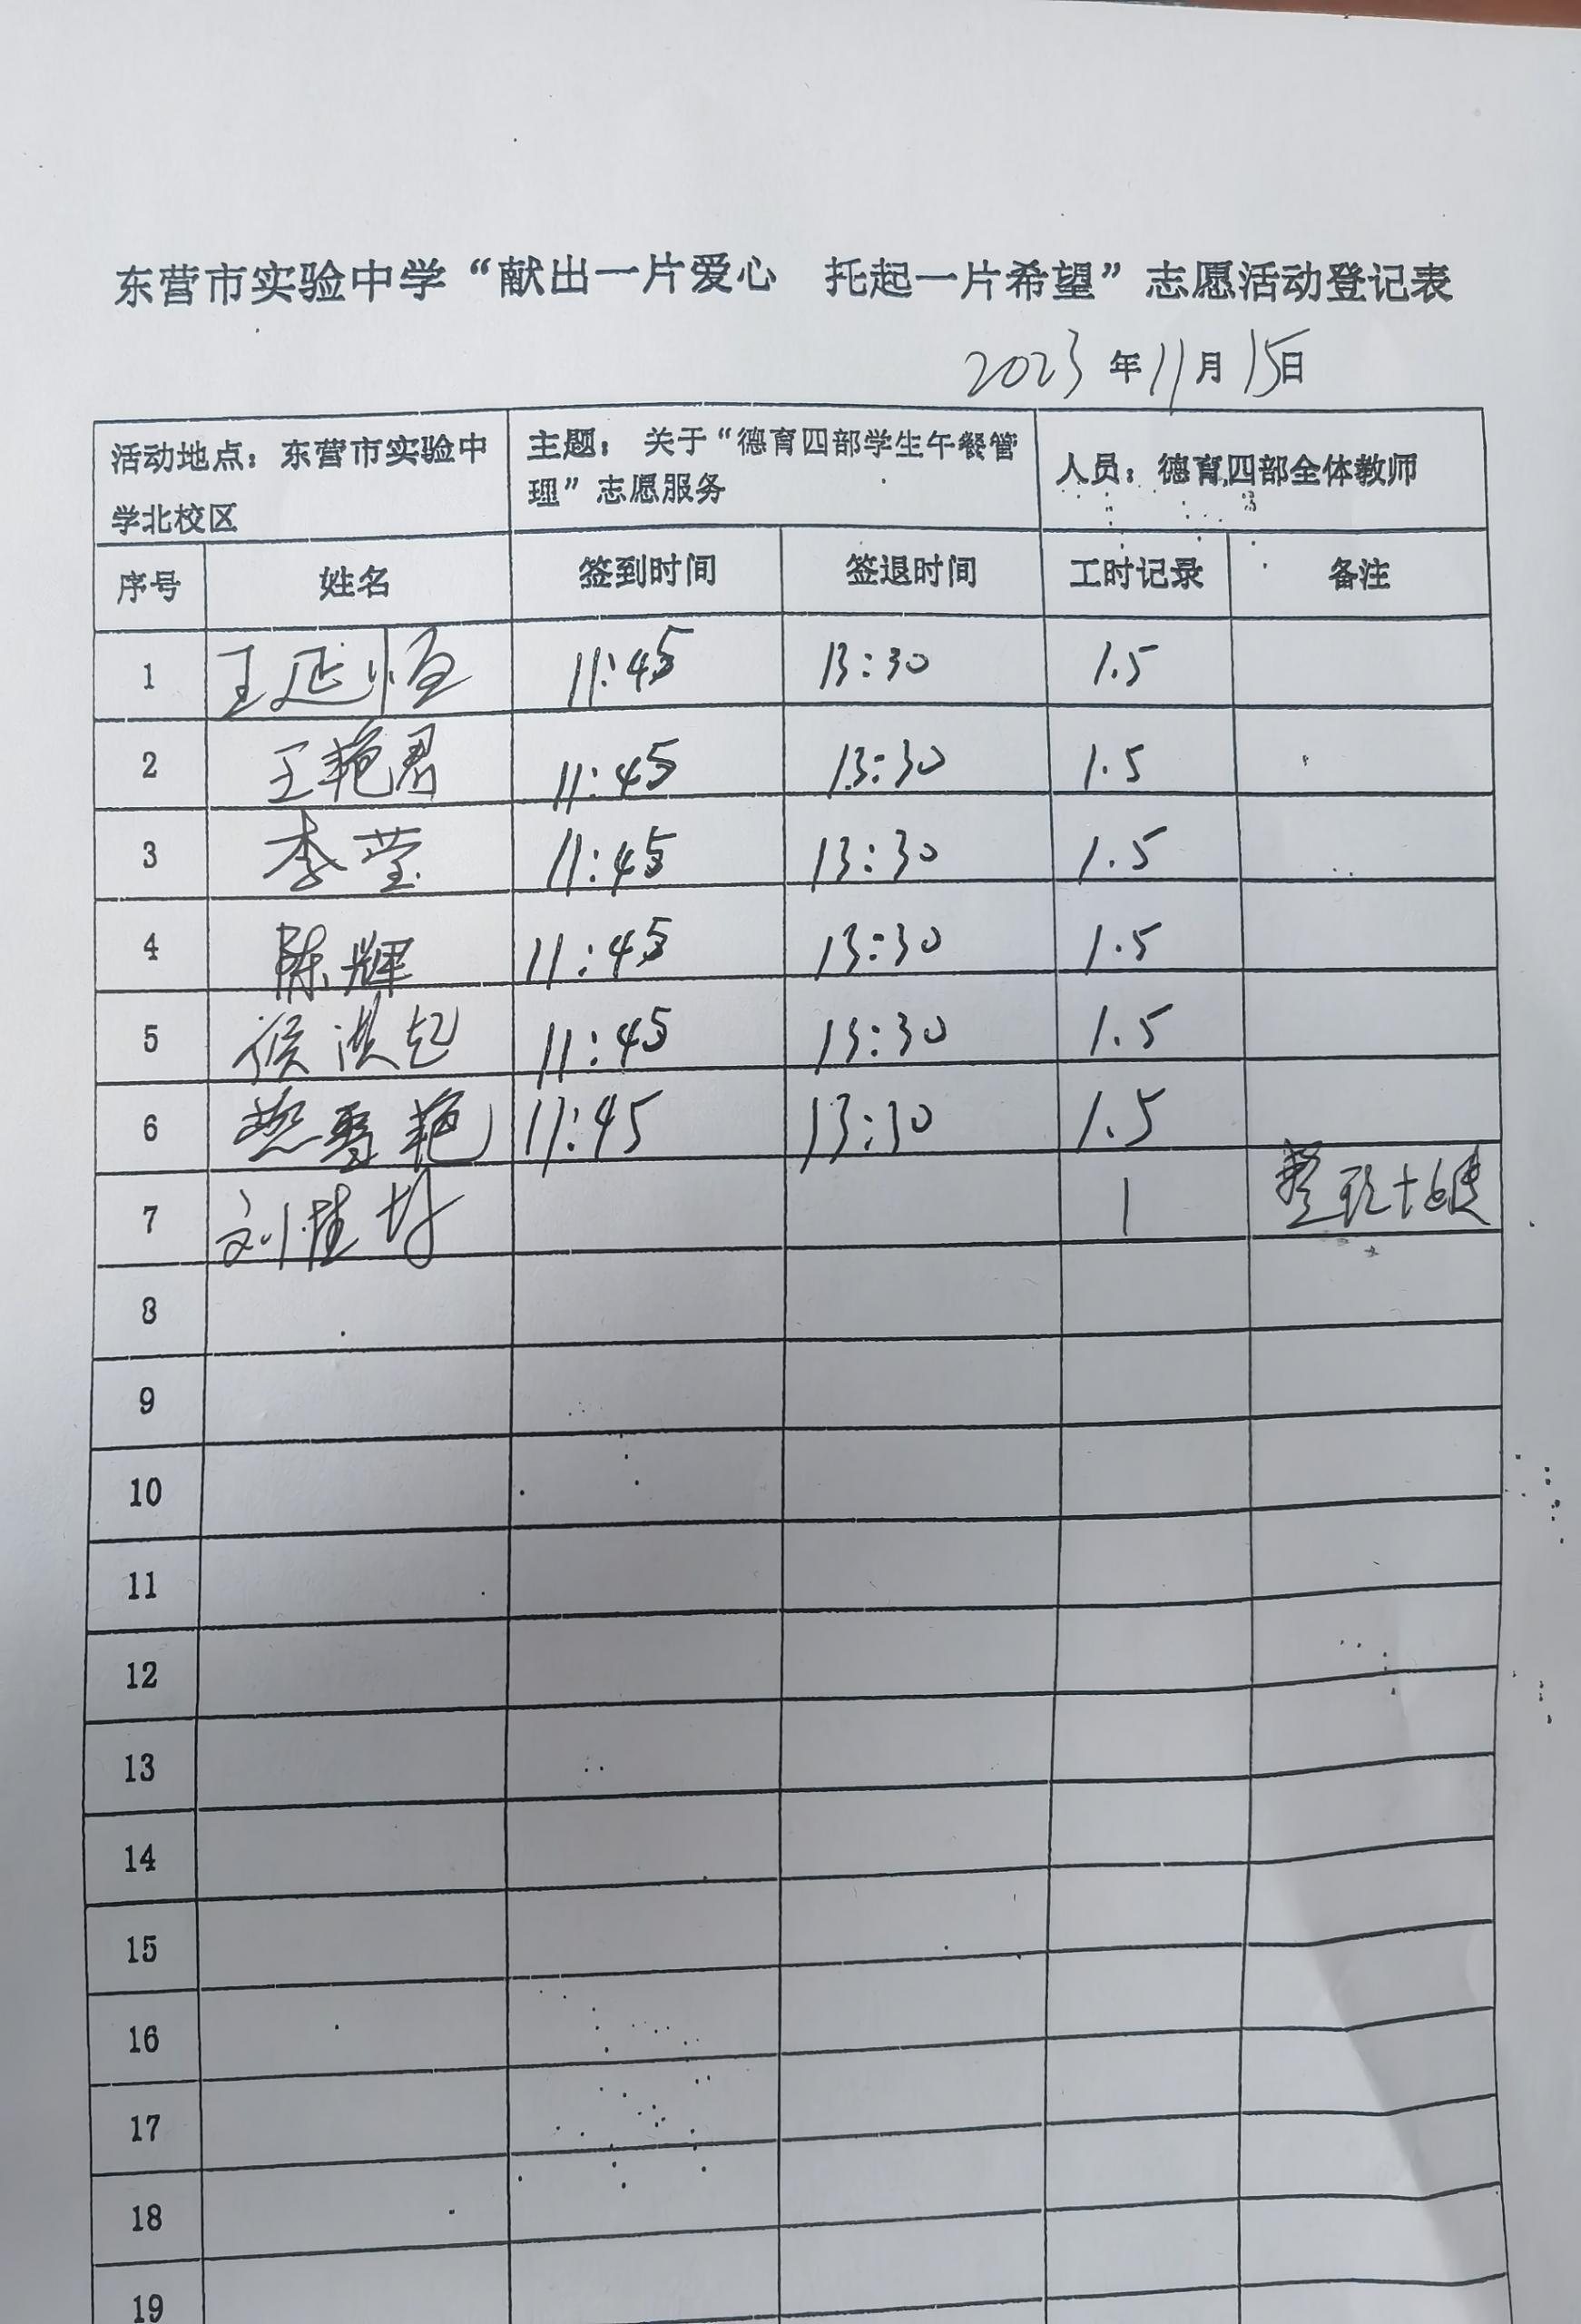 东营市实验中学“献出一片爱心 托起一片希望”志愿活动登记表
2023年11月15日
活动地点：东营市实验中
学北校区
主题： 关于“德育四部学生午餐管
理”志愿服务
人员：德育四部全体教师
序号 姓名 签到时间 签退时间 工时记录 备注
1 王延恒 11:45 13:30 1.5
2 王艳君 11:45 13:30 1.5
3 李莹 11:45 13:30 1.5
4 陈辉 11:45 13:30 1.5
5 侯洪起 11:45 13:30 1.5
6 燕雪艳 11:45 13:30 1.5
7 刘 1 整理
8
9
10
11
12
13
14
15
16
17
18
19